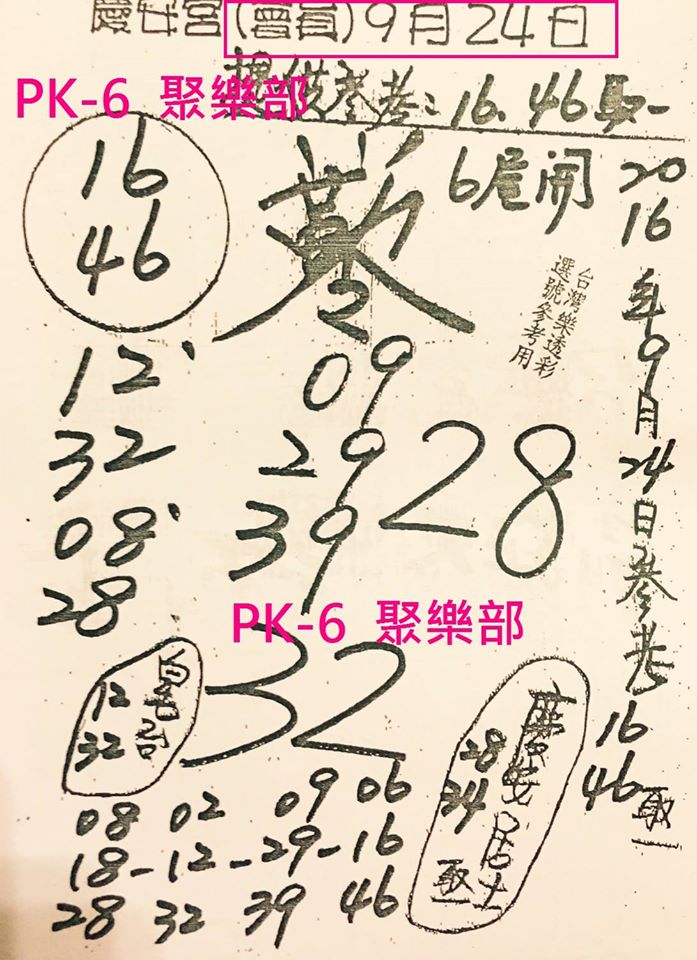 慶安宮(會員)9月24日
提供參考:16.46取一
PK-6 聚樂部
16
46
6尾開
2016年9月24日參考16 46取一
台灣樂透彩
選號參考用
12
32
08
28
09
29
39
28
32
PK-6 聚樂部
12
32
慶安居士
28
24
取一
08 02 09 06
18-12-29-16
28 32 39 46